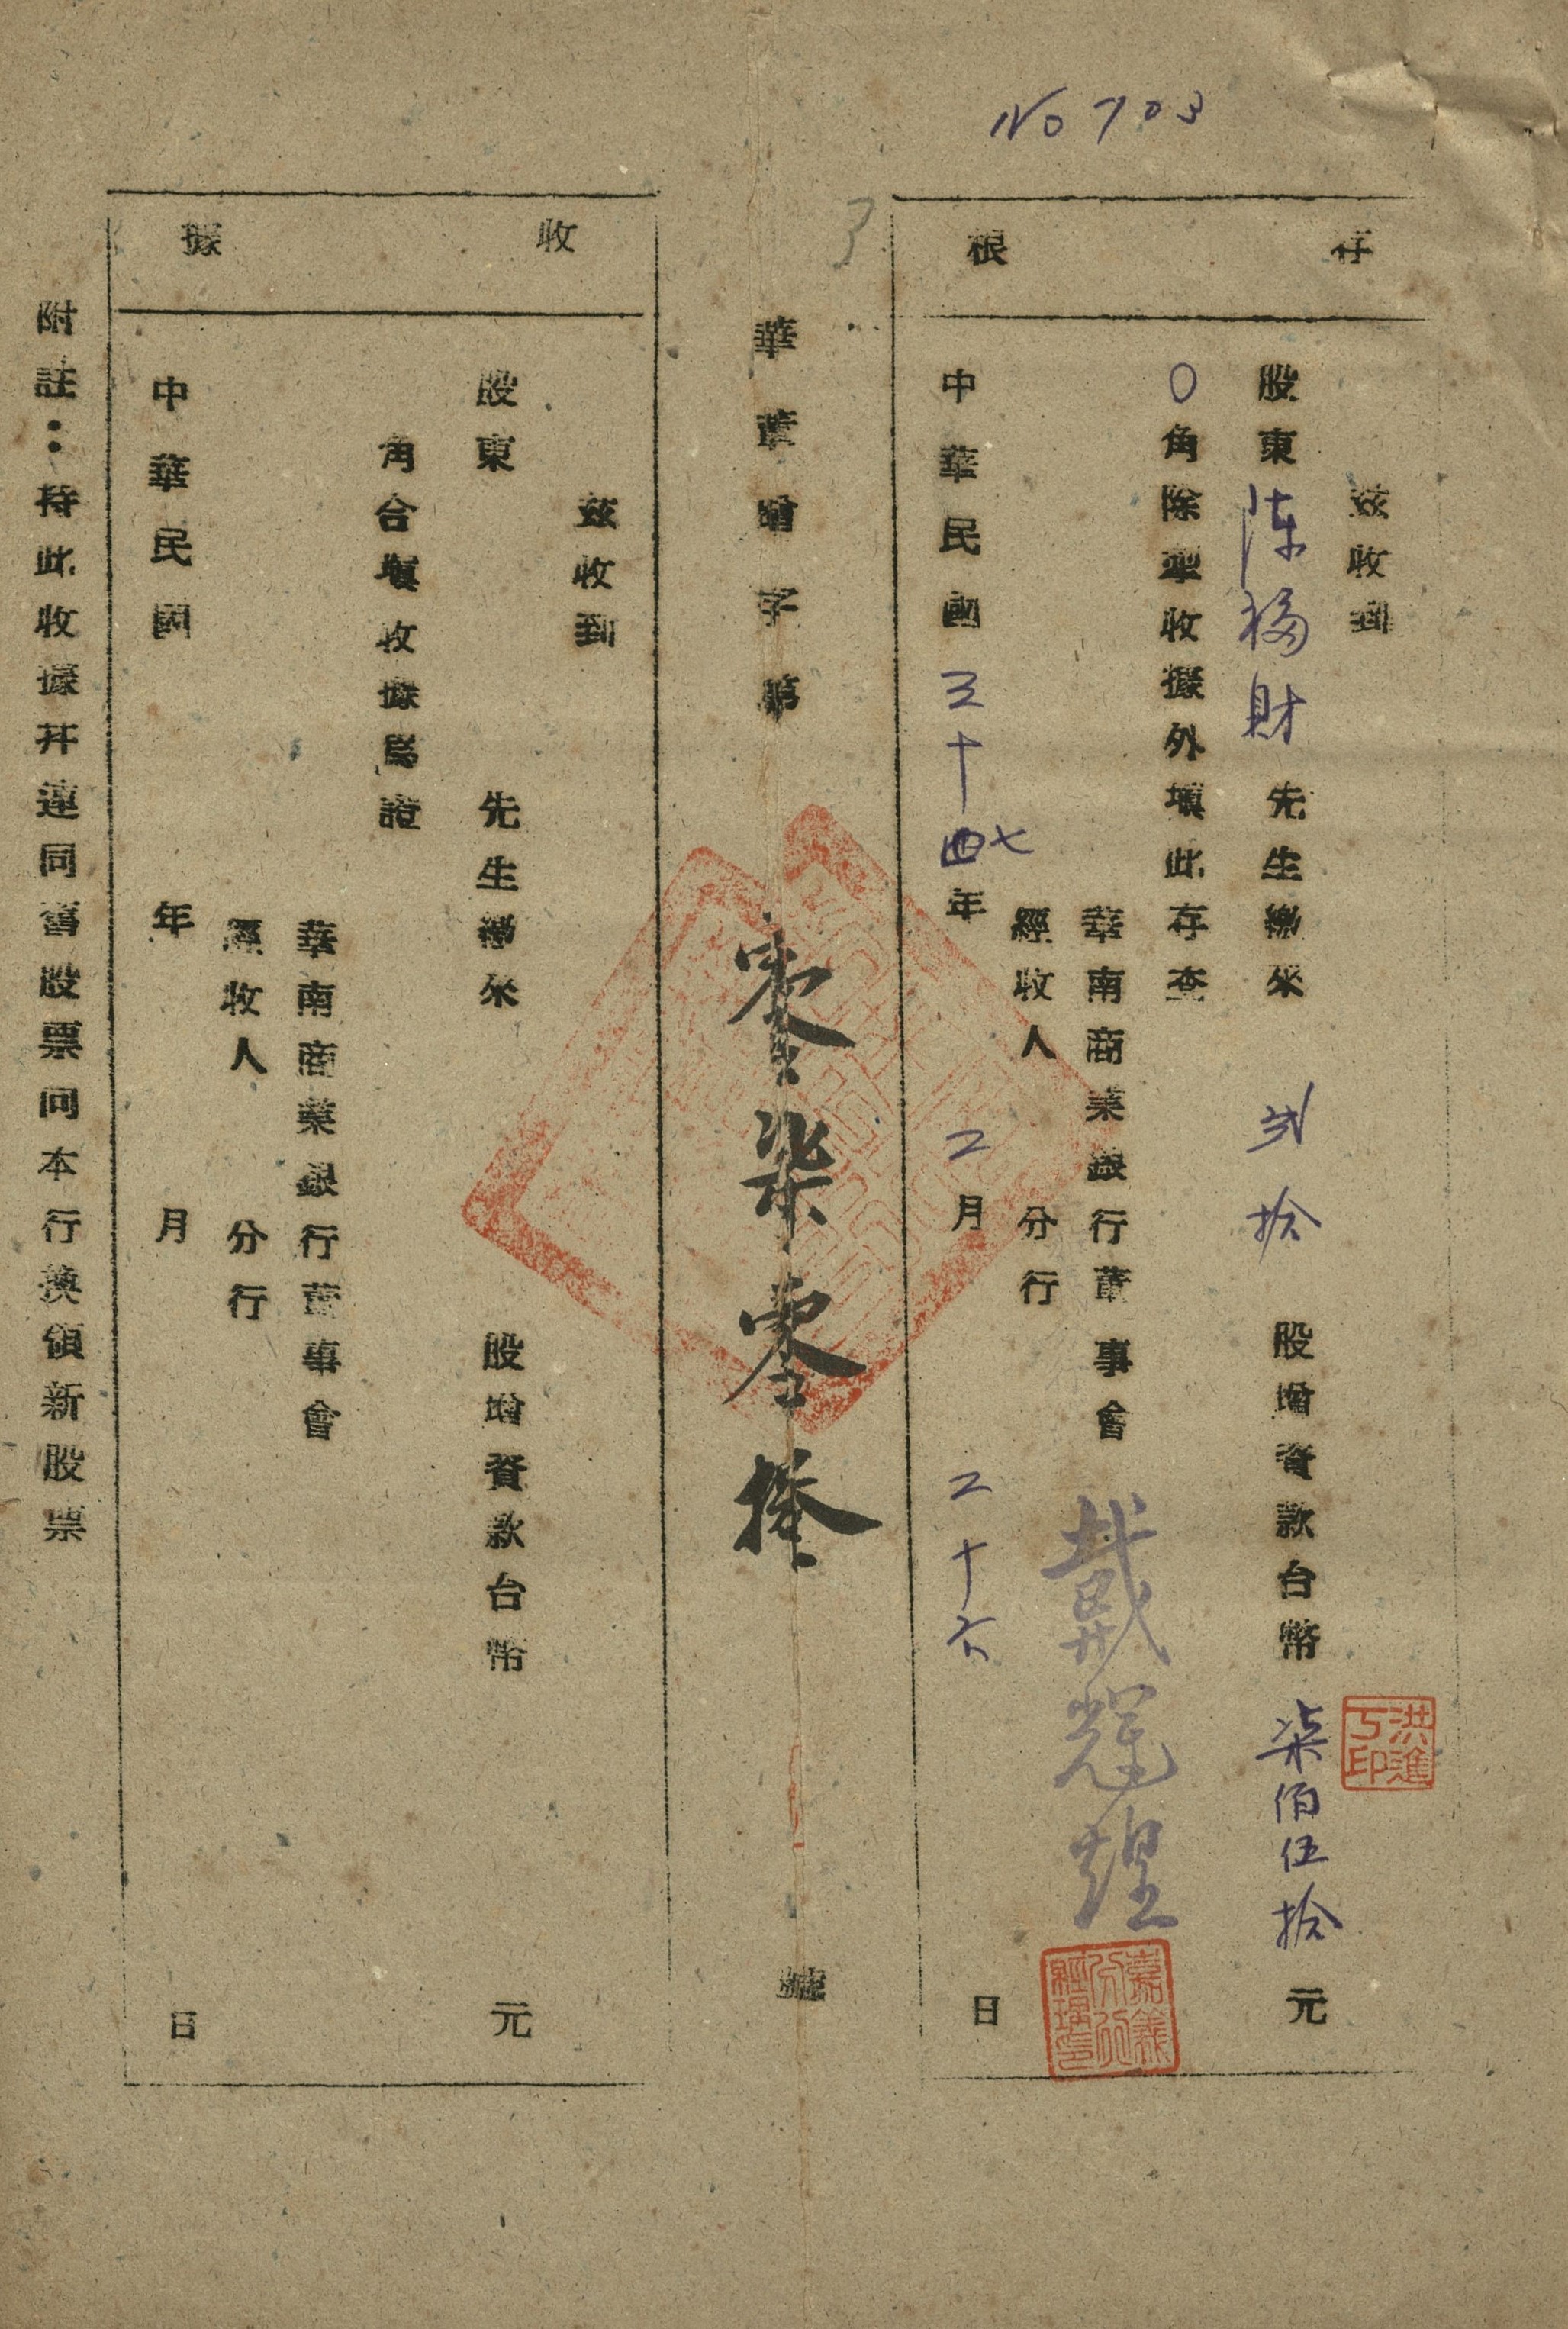 No 703
存根
茲收到
股東陳福財先生繳來弍拾股增資款台幣柒佰伍拾元
0角除掣收據外塡此存查
華南商業銀行董事會
經收人 分行 戴輝煌
中華民國三十四七年二月二十六日
洪進丁印
嘉義分行經理之印
華董增字第零柒零捌號
收據
茲收到
股東 先生繳來 股增資款台幣 元
角合塡收據爲證
華南商業銀行董事會
經收人 分行
中華民國 年 月 日
附註：持此收據幷連同舊股票向本行換領新股票